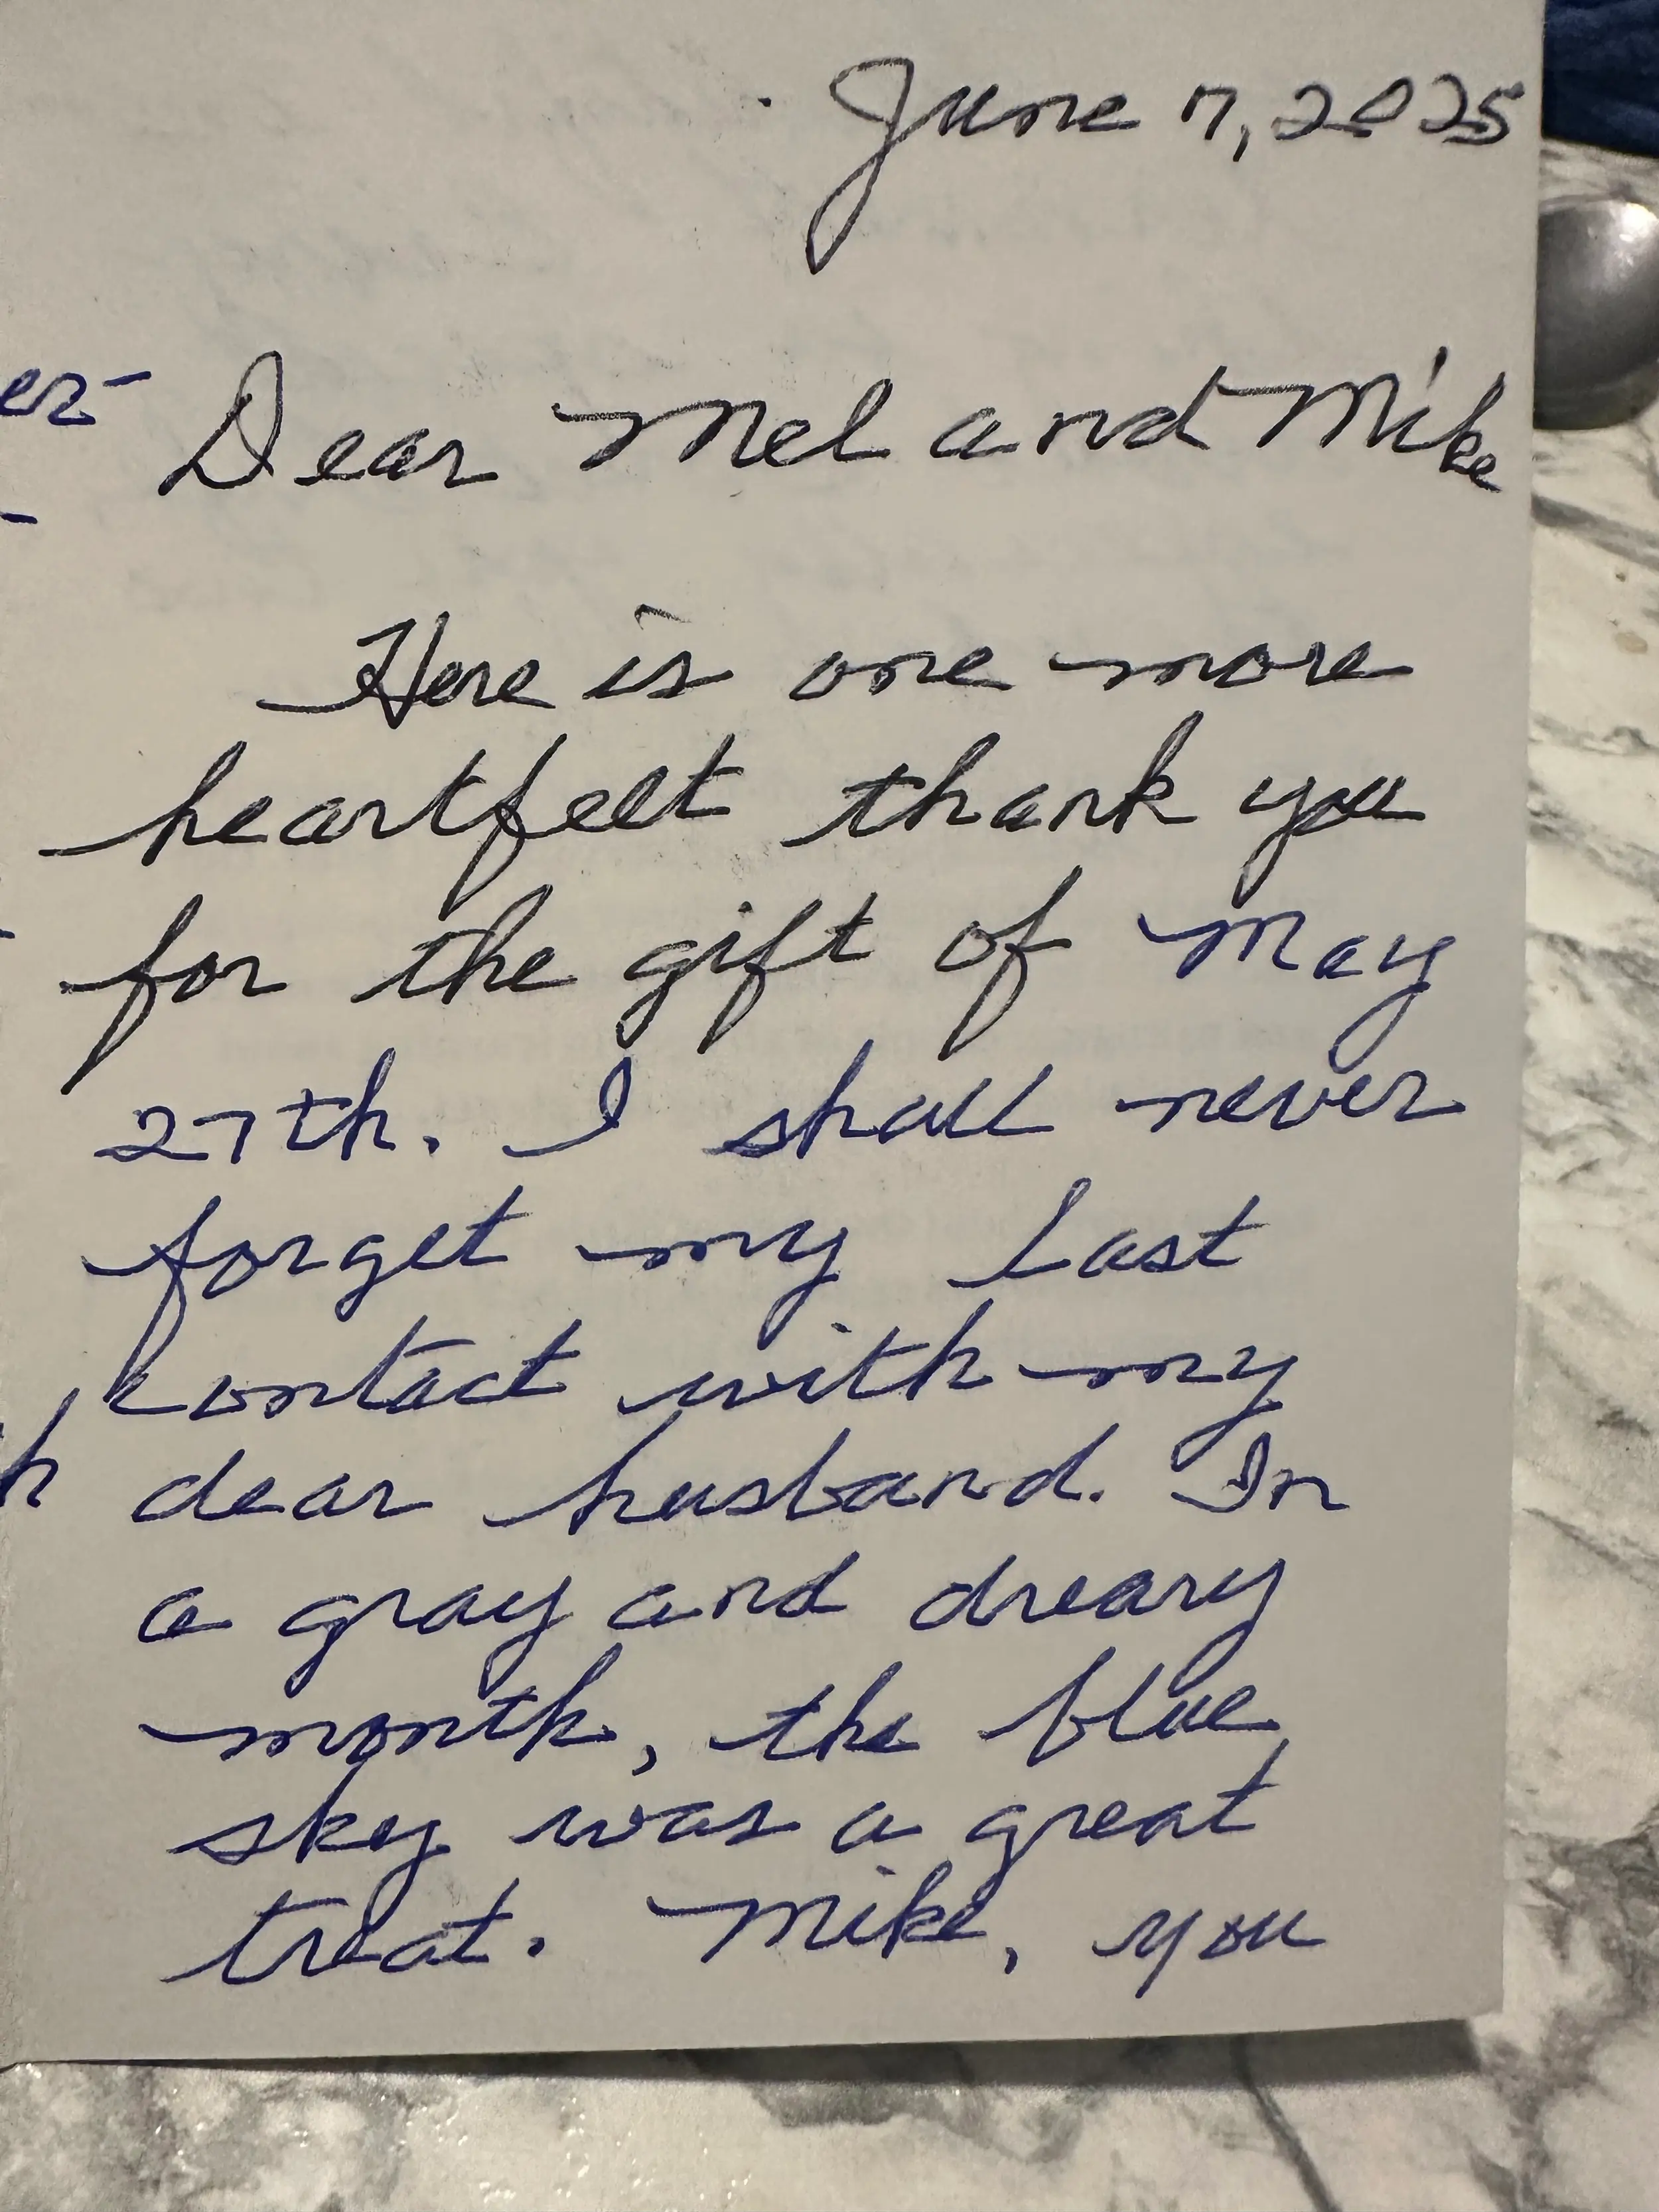 June 7, 2025
Dear Mel and Mike
Here is one more
heartfelt thank you
for the gift of May
27th. I shall never
forget my last
contact with my
dear husband. In
a gray and dreary
month, the blue
sky was a great
treat. Mike, you